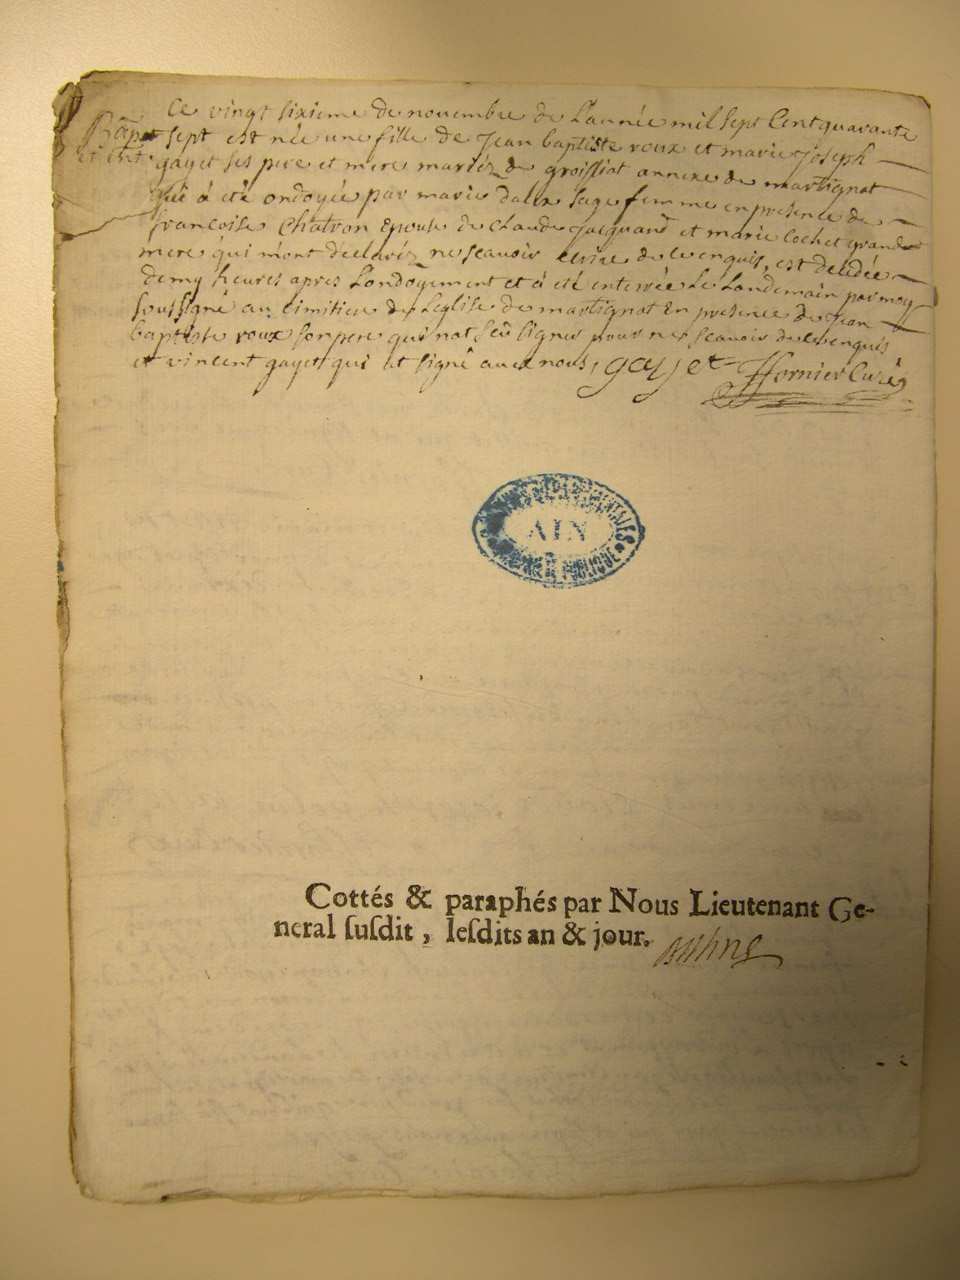 Ce vingt sixieme de novembre de L'année mil sept Cent quarante
Bapt sept est née une fille de Jean baptiste roux et marie Joseph
et ent. gayet ses pere et mere mariéz de groissiat annexe de martignat
qui à été ondoyée par marie sage femme en presence de
francoise Chatron Epouse de Claude Jacquand et marie Cochet grande
mere qui m'ont déclaréz ne scavoir ecrire de ce enquis, est decedée
demy heures apres L'ondoyement et à été enterrée Le Landemain par moy
soussigné au cimitiere de L'eglise de martignat En presence de Jean
baptiste roux son pere qui n'at sçû signer pour ne scavoir de ce enquis
et vincent gayet qui at signé avec nous, gayet Hornier Curé
ARCHIVES DÉPARTEMENTALES
AIN
PUBLIQUE
Cottés & paraphés par Nous Lieutenant Ge-
neral susdit, lesdits an & jour.